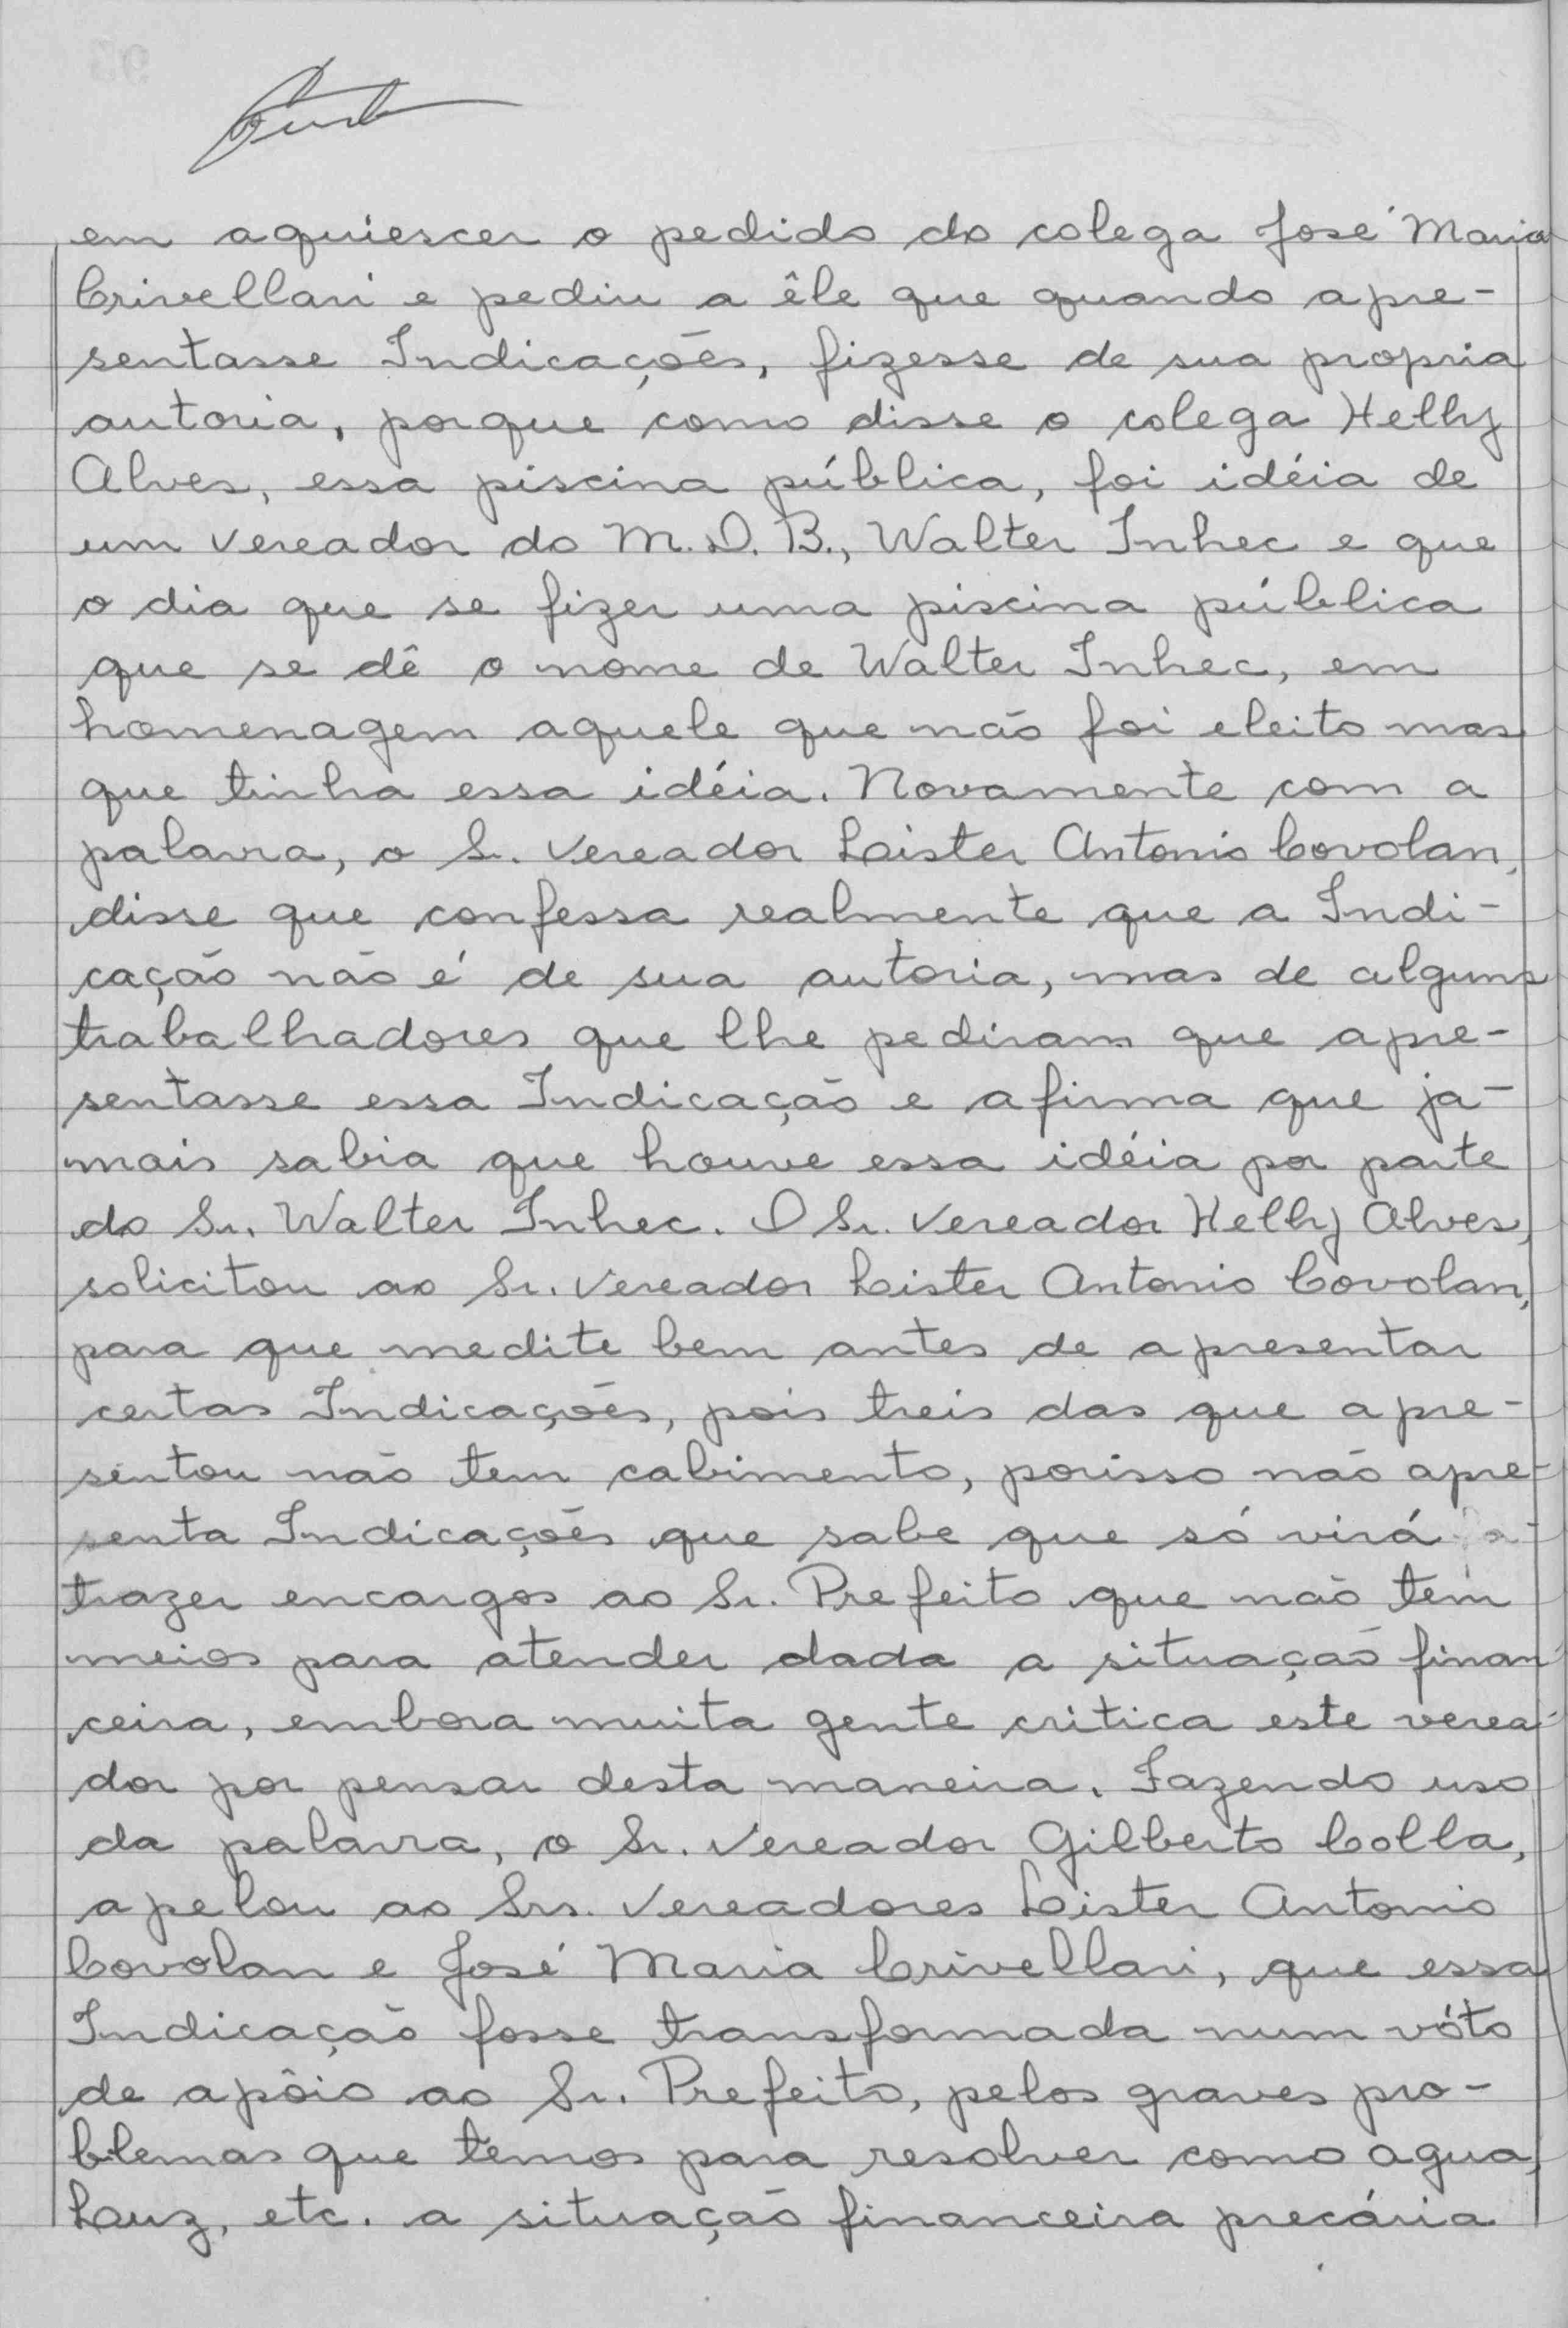 em aquiescer o pedido do colega José Maria
Crivellari e pediu a êle que quando apre-
sentasse Indicações, fizesse de sua propria
autoria, porque como disse o colega Helly
Alves, essa piscina pública, foi idéia de
um vereador do M.D.B., Walter Inhec e que
o dia que se fizer uma piscina pública
que se dê o nome de Walter Inhec, em
homenagem aquele que não foi eleito mas
que tinha essa idéia. Novamente com a
palavra, o Sr. Vereador Lister Antonio Covolan,
disse que confessa realmente que a Indi-
cação não é de sua autoria, mas de alguns
trabalhadores que lhe pediram que apre-
sentasse essa Indicação e afirma que ja-
mais sabia que houve essa idéia por parte
do Sr. Walter Inhec. O Sr. Vereador Helly Alves,
solicitou ao Sr. Vereador Lister Antonio Covolan,
para que medite bem antes de apresentar
certas Indicações, pois treis das que apre-
sentou não tem cabimento, porisso não apre-
senta Indicações que sabe que só virá
trazer encargos ao Sr. Prefeito que não tem
meios para atender dada a situação finan
ceira, embora muita gente critica este verea-
dor por pensar desta maneira. Fazendo uso
da palavra, o Sr. Vereador Gilberto Colla,
apelou ao Srs. Vereadores Lister Antonio
Covolan e José Maria Crivellari, que essa
Indicação fosse transformada num vóto
de apôio ao Sr. Prefeito, pelos graves pro-
blemas que temos para resolver como agua,
Luz, etc. a situação financeira precária